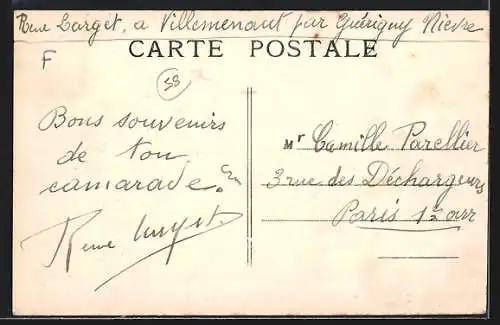 René Larget, a Villemenant par Guérigny Nievre
CARTE POSTALE
F
58
Bons souvenirs
de ton
camarade.
René
Mr Camille Parellier
3 rue des Déchargeurs
Paris 1er arr